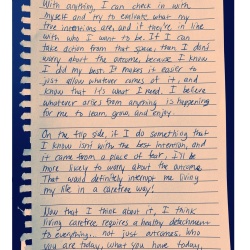 With anything, I can check in with
myself and try to evaluate what my
true intentions are, and if they're in line
with who I want to be. If I can
take action from that space, then I don't
worry about the outcome, because I know
I did my best. It makes it easier to
just allow whatever comes of it, and
know that it's what I need. I believe
whatever arises from anything is happening
for me to learn, grow and enjoy.
On the flip side, if I do something that
I know isn't with the best intention, and
it came from a place of fear, I'll be
more likely to worry about the outcome.
That would definitely interrupt me living
my life in a carefree way!
Now that I think about it, I think
living carefree requires a healthy detachment
to everything... not just outcomes. Who
you are today, what you have today,